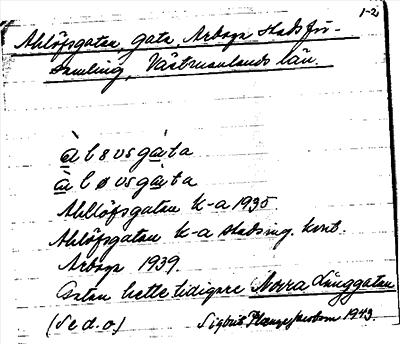 1-2
Ahlöfsgatan, gata Arboga stadsför-
samling, Västmanlands län.
àløvsga̲ta
Ahllöfsgatan k-a 1935.
Ahlöfsgatan k-a stadsing. kont.
Arboga 1939.
Gatan hette tidigare Norra Långgatan
(se d. o.) Sigbrit 1943.